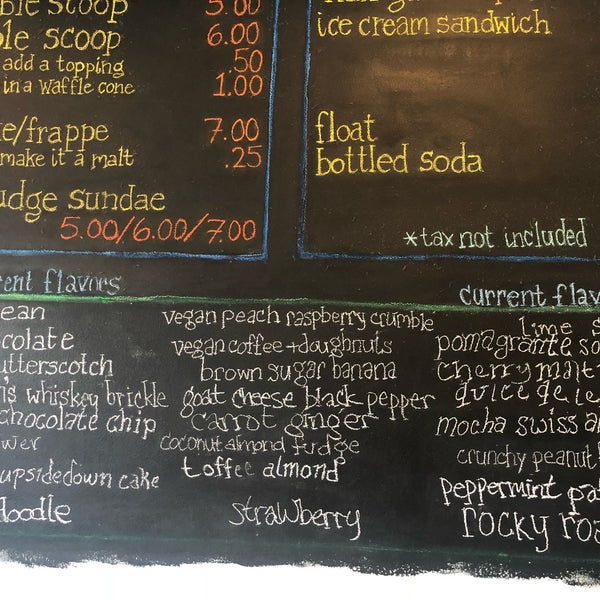 ble scoop 5.00
ole scoop 6.00
add a topping .50
in a waffle cone 1.00
e/frappe 7.00
make it a malt .25
udge sundae
5.00/6.00/7.00
ice cream sandwich
float
bottled soda
*tax not included
rent flavors
ean
colate
utterscotch
n's whiskey brickle
chocolate chip
wer
upsidedown cake
doodle
vegan peach raspberry crumble
vegan coffee + doughnuts
brown sugar banana
goat cheese black pepper
carrot ginger
coconut almond fudge
toffee almond
strawberry
current flav
lime s
pomagranite so
cherry malt
dulce de le
mocha swiss al
crunchy peanut
peppermint pat
rocky roa